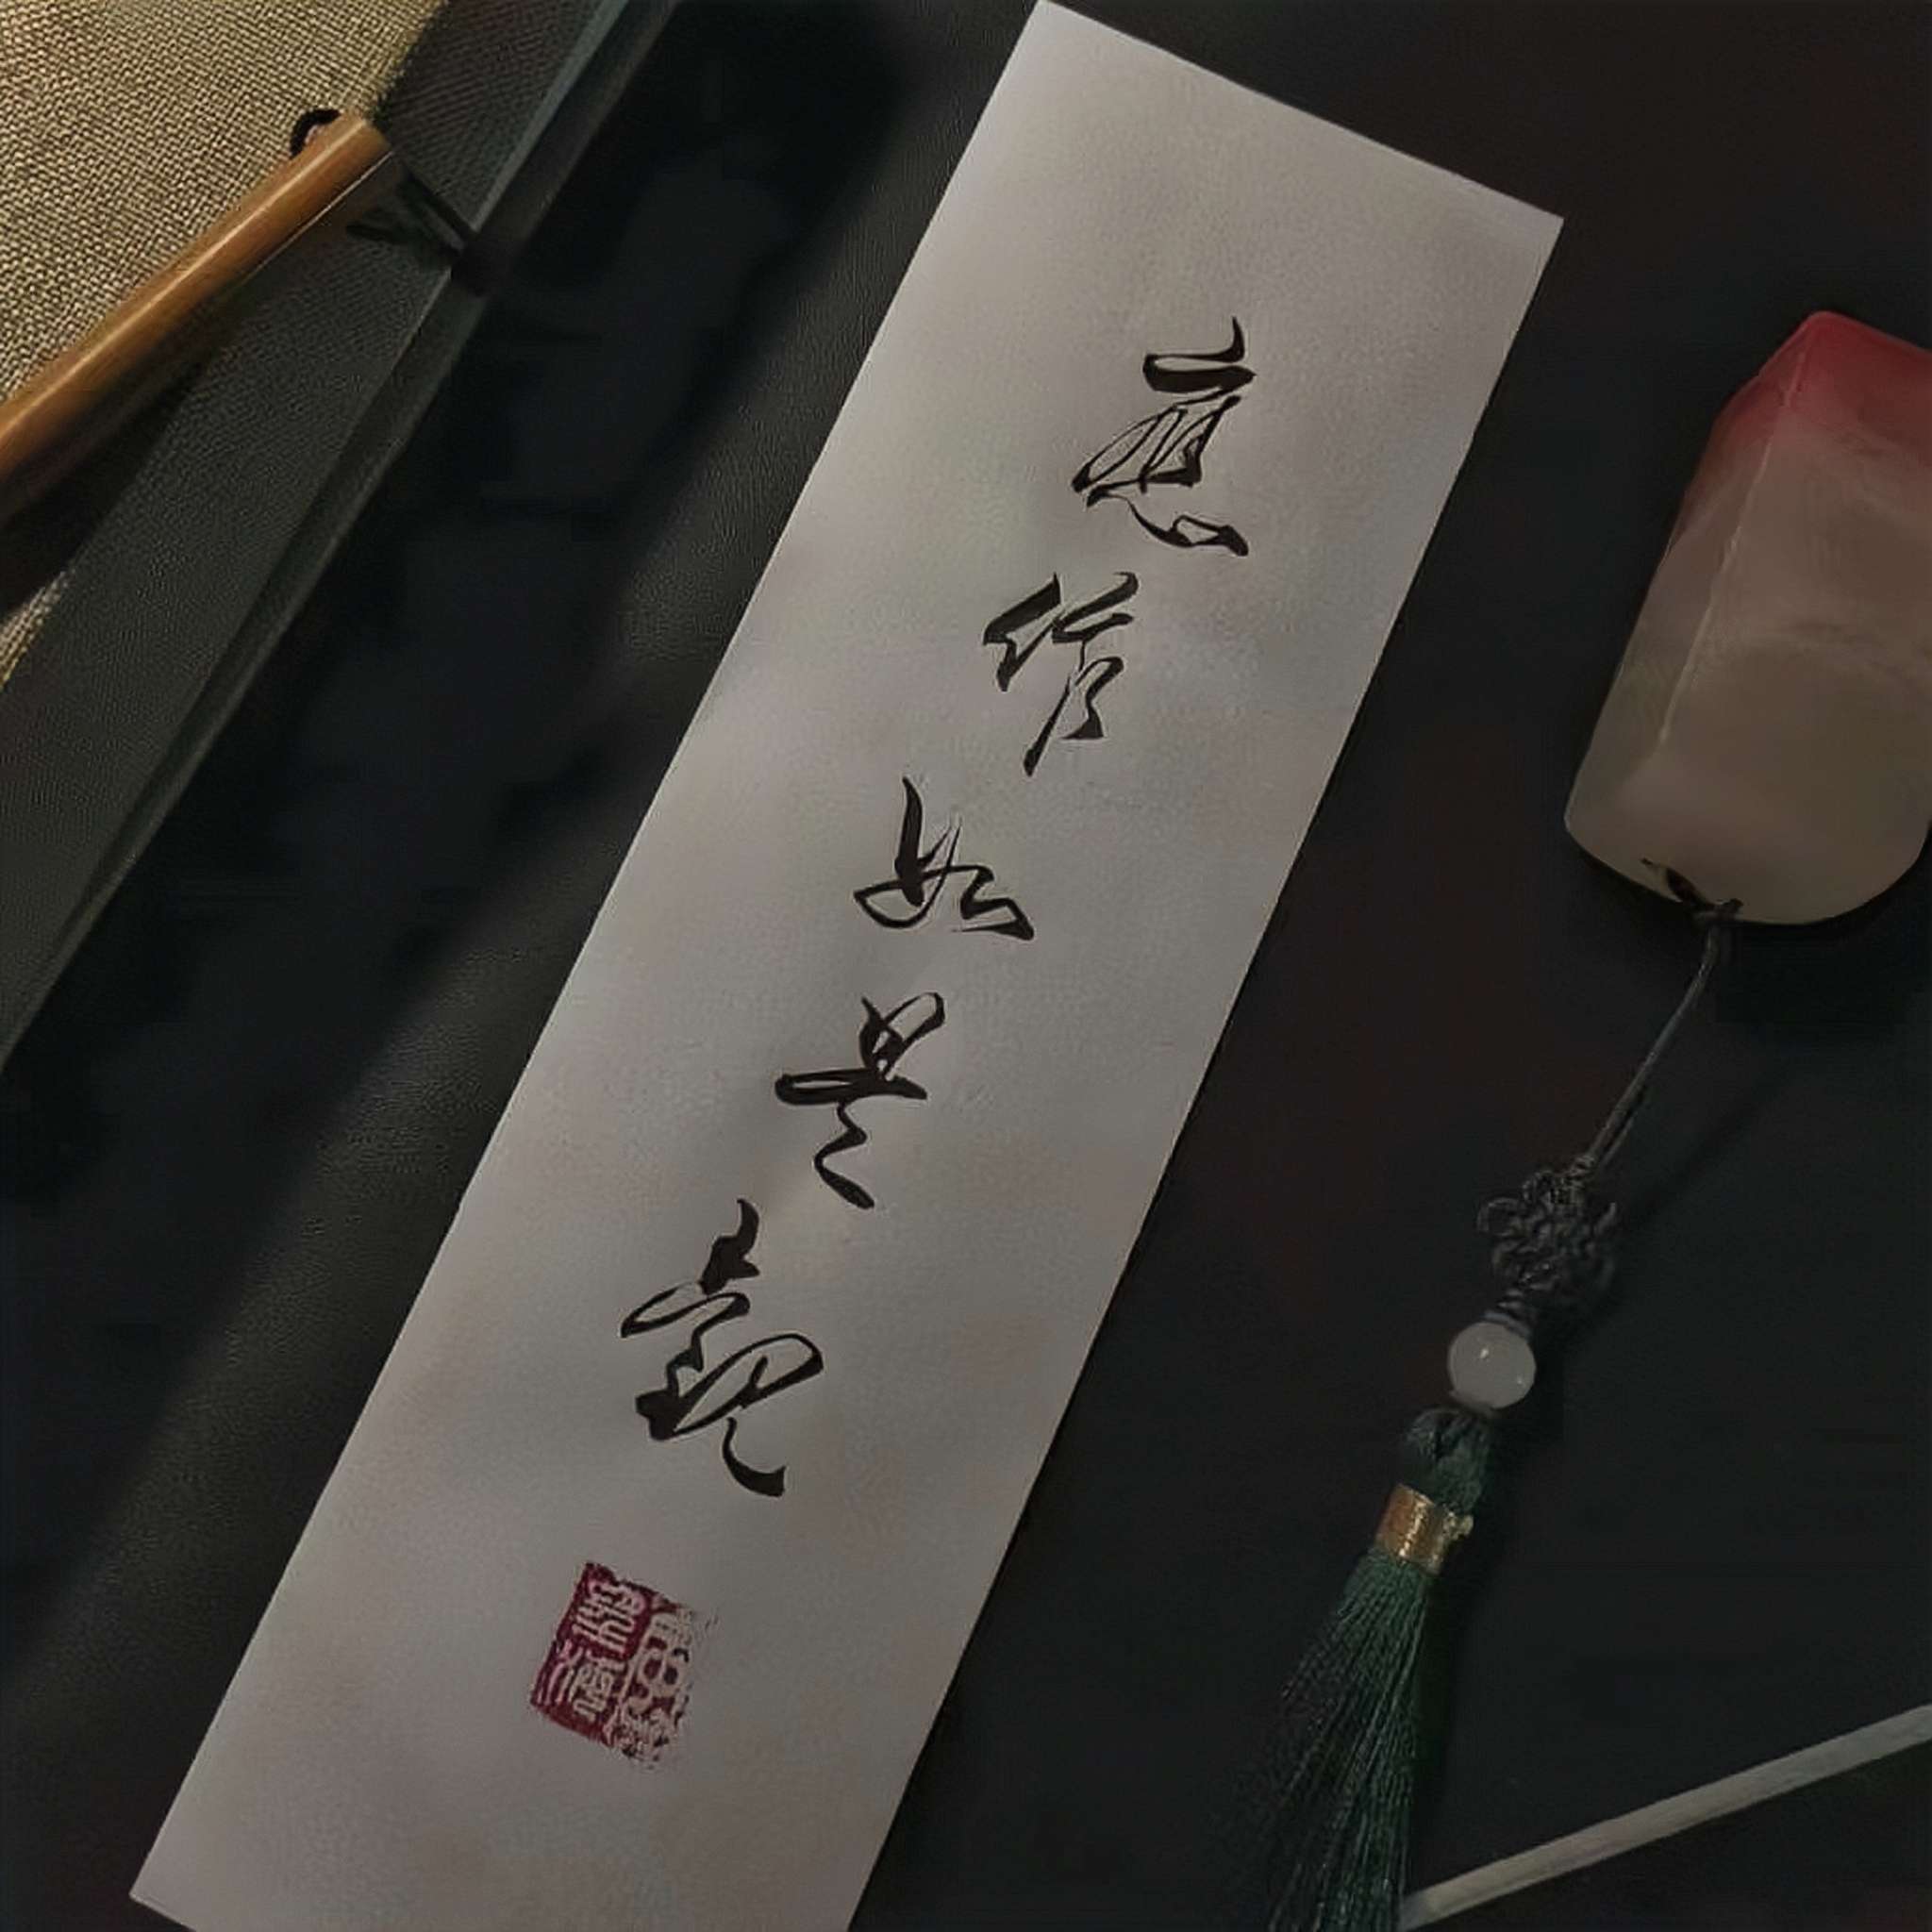 應作如是觀